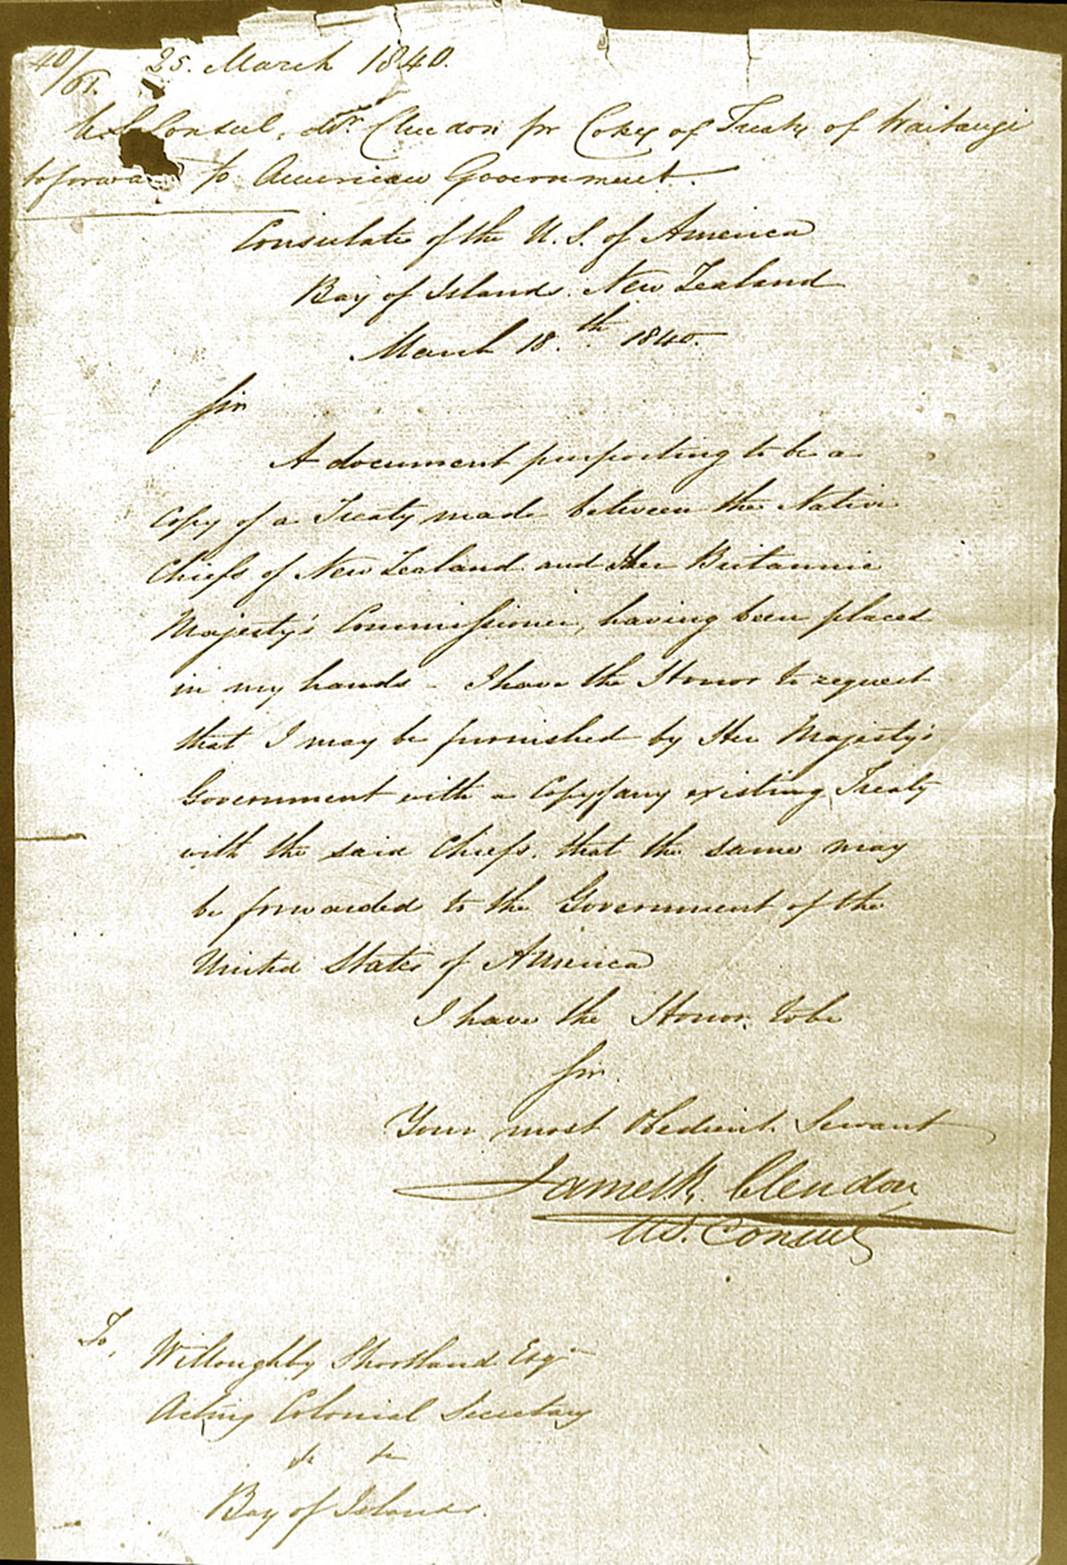 40/61. 25. March 1840.
U.S. Consul, Mr. Clendon for Copy of Treaty of Waitangi
to forward to American Government.
Consulate of the U. S. of America
Bay of Islands. New Zealand
March 18.th 1840.
Sir
A document purporting to be a
Copy of a Treaty made between the Native
Chiefs of New Zealand and Her Britannic
Majesty's Commissioner, having been placed
in my hands - I have the Honor to request
that I may be furnished by Her Majesty's
Government with a Copy of any existing Treaty
with the said Chiefs. that the same may
be forwarded to the Government of the
United States of America
I have the Honor to be
Sir.
Your most Obedient. Servant
James R. Clendon
U.S. Consul
To,
Willoughby Shortland Esqr
Acting Colonial Secretary
&c &c
Bay of Islands.